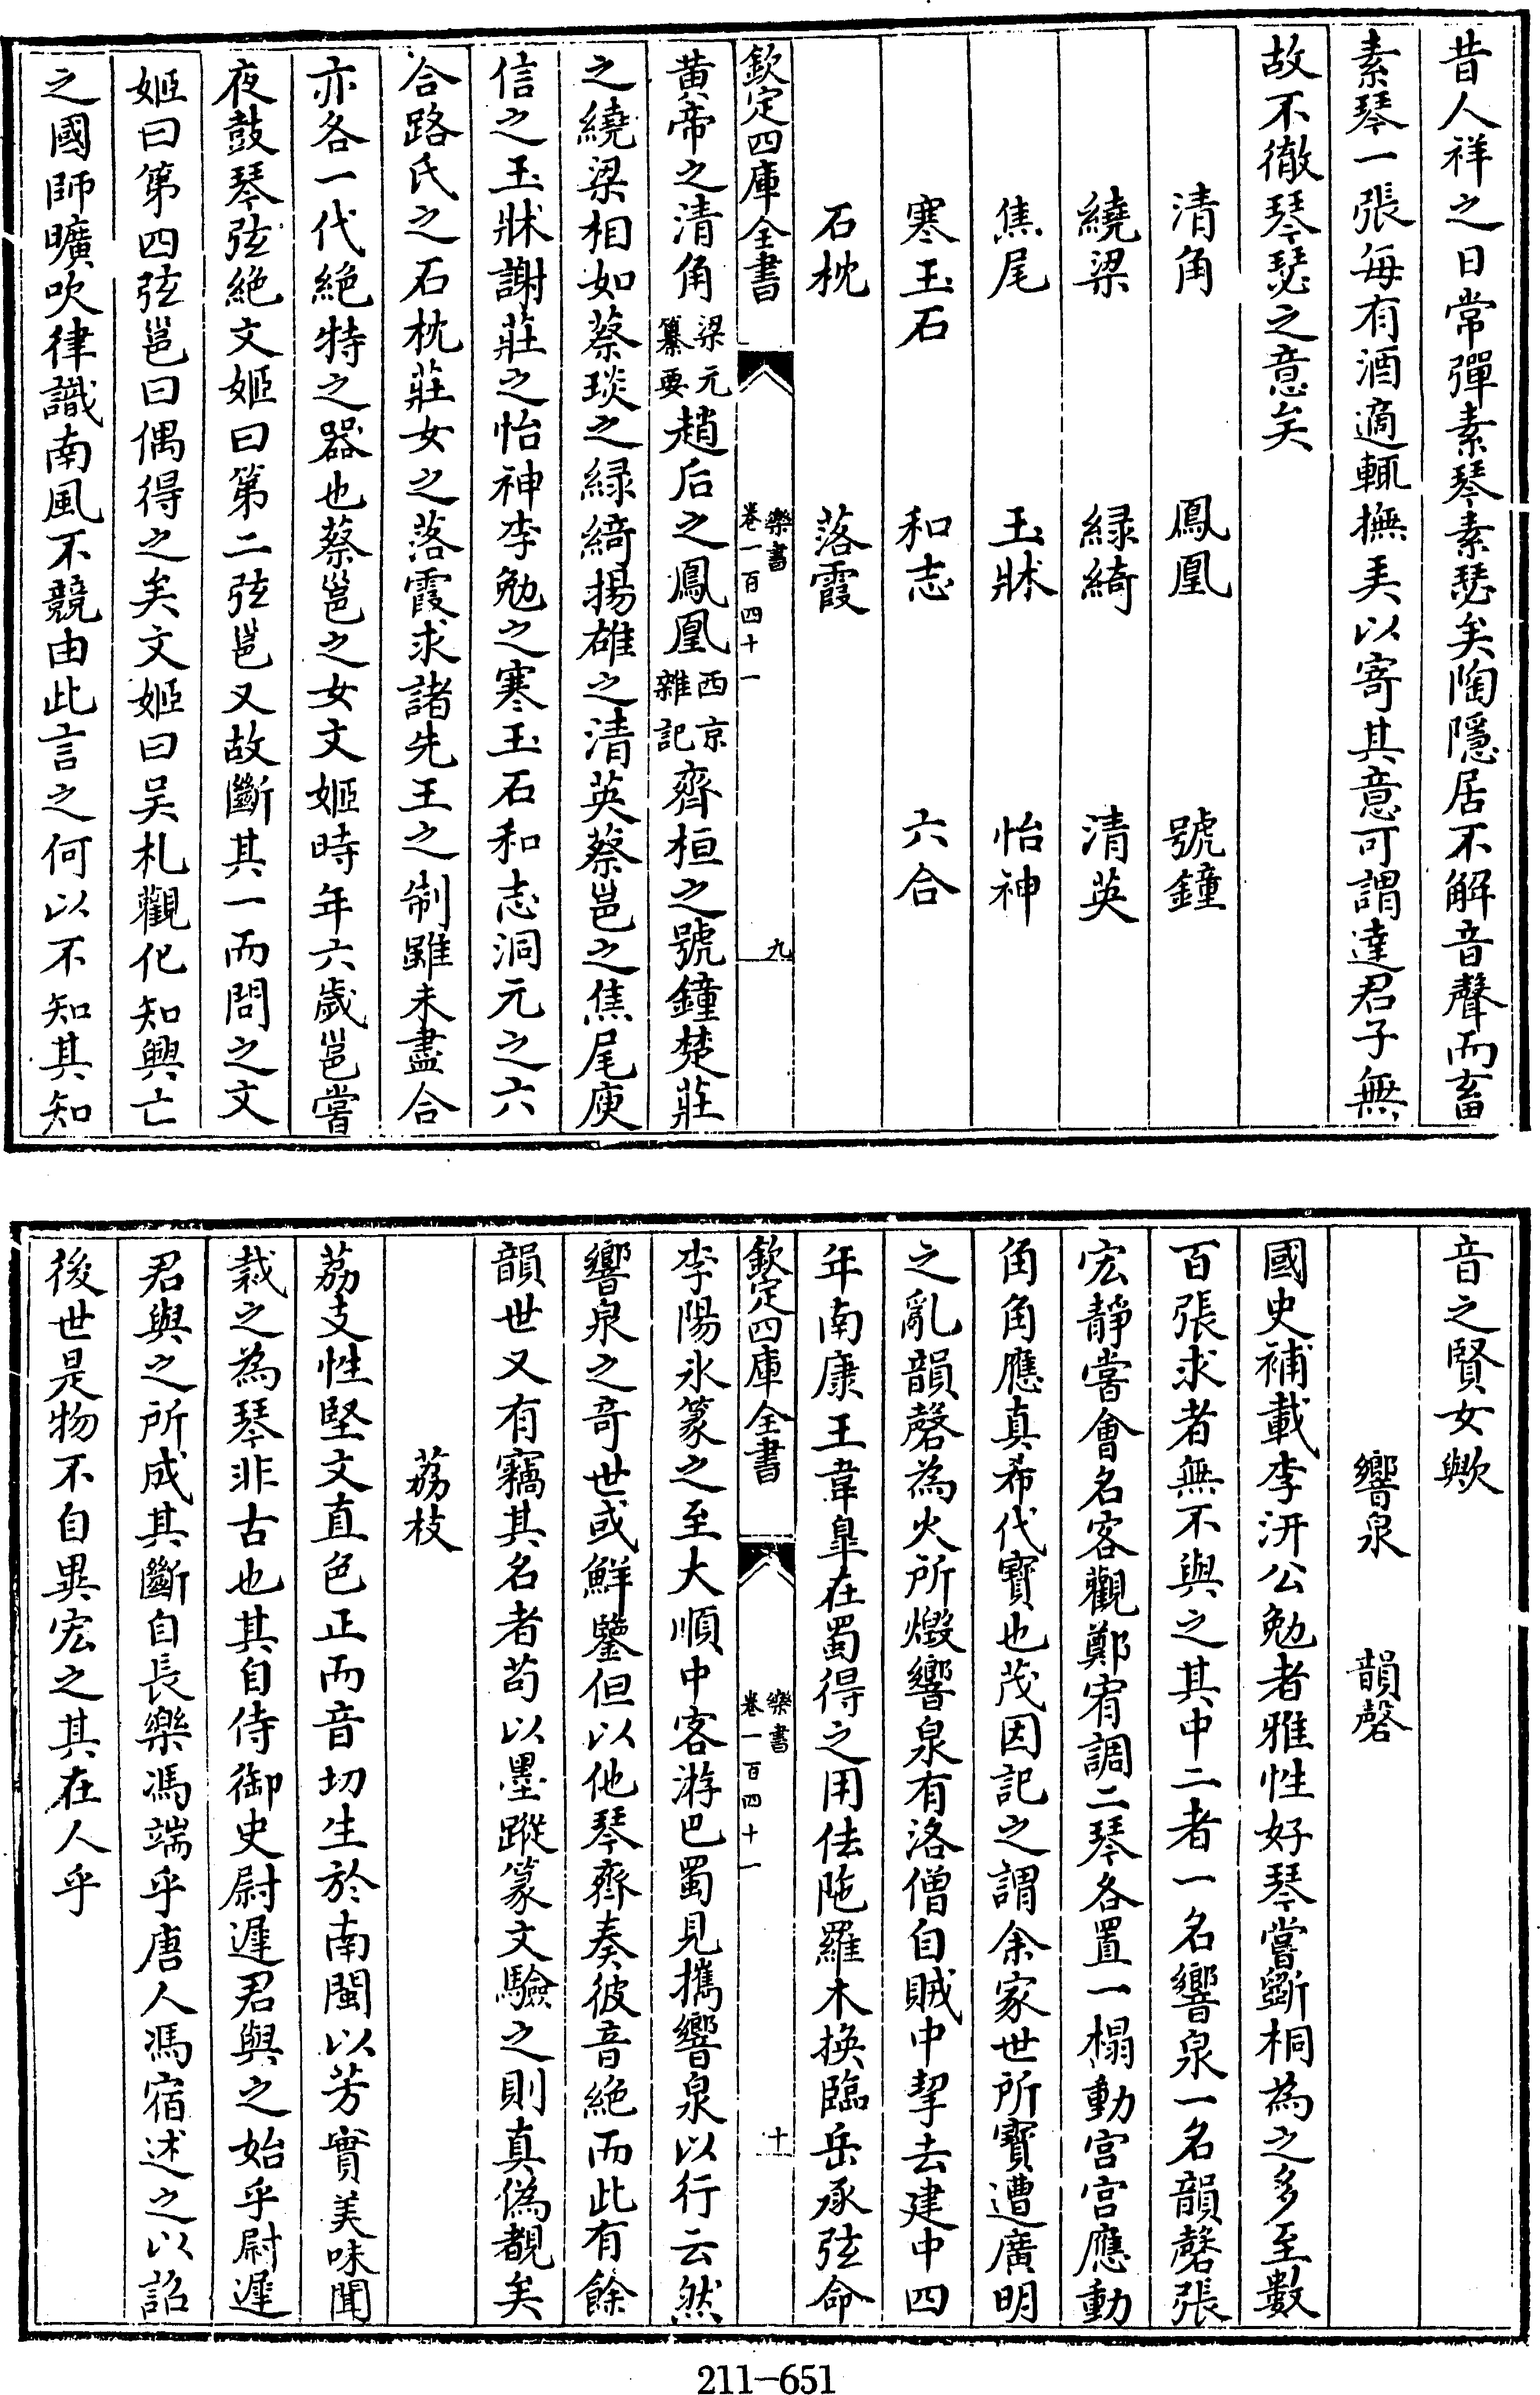 昔人祥之日常彈素琴素瑟矣陶隱居不解音聲而畜
素琴一張每有酒適輒撫弄以寄其意可謂達君子無
故不徹琴瑟之意矣
清角　鳳凰　號鐘
繞梁　緑綺　清英
焦尾　玉牀　怡神
寒玉石　和志　六合
石枕　落霞
欽定四庫全書　樂書卷一百四十一　九
黄帝之清角梁元纂要趙后之鳳凰西京雜記齊桓之號鐘楚莊
之繞梁相如蔡琰之緑綺揚雄之清英蔡邕之焦尾庾
信之玉牀謝莊之怡神李勉之寒玉石和志洞元之六
合路氏之石枕莊女之落霞求諸先王之制雖未盡合
亦各一代絶特之器也蔡邕之女文姬時年六歲邕嘗
夜鼓琴弦絶文姬曰第二弦邕又故斷其一而問之文
姬曰第四弦邕曰偶得之矣文姬曰吴札觀化知興亡
之國師曠吹律識南風不競由此言之何以不知其知
音之賢女歟
響泉　韻磬
國史補載李汧公勉者雅性好琴嘗斵桐為之多至數
百張求者無不與之其中二者一名響泉一名韻磬張
宏靜嘗會名客觀鄭宥調二琴各置一榻動宫宫應動
角角應真希代寳也茂因記之謂余家世所寳遭廣明
之亂韻磬為火所燬響泉有洛僧自賊中挈去建中四
年南康王韋臯在蜀得之用佉陁羅木换臨岳承弦命
欽定四庫全書　樂書卷一百四十一　十
李陽氷篆之至大順中客游巴蜀見攜響泉以行云然
響泉之竒世或鮮鑒但以他琴齊奏彼音絶而此有餘
韻世又有竊其名者茍以墨蹤篆文驗之則真偽覩矣
荔枝
荔支性堅文直色正而音切生於南閩以芳實美味聞
裁之為琴非古也其自侍御史尉遲君與之始乎尉遲
君與之所成其斵自長樂馮端乎唐人馮宿述之以詔
後世是物不自異宏之其在人乎
211-651